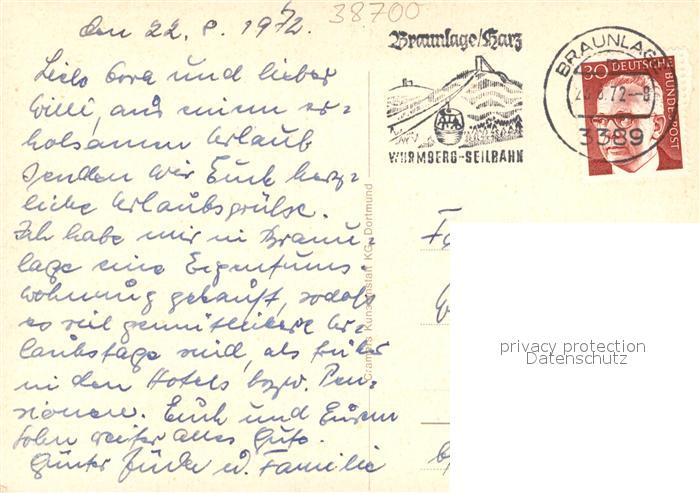 38700
den 22. 8. 1972.
Liebe Cora und lieber
Willi, aus einem er-
holsamen Urlaub
senden wir Euch herz-
liche Urlaubsgrüße.
Ich habe mir in Braun-
lage eine Eigentums-
wohnung gekauft, sodaß
es viel gemütlichere Ur-
laubstage sind, als früher
in den Hotels bzw. Pen-
sionen. Euch und Eurem
Sohn weiter alles Gute.
Günter u. Familie
Braunlage/Harz
WURMBERG-SEILBAHN
BRAUNLAGE
72--8
3389
30 DEUTSCHE BUNDESPOST
Cramers Kunstanstalt KG, Dortmund
privacy protection
Datenschutz